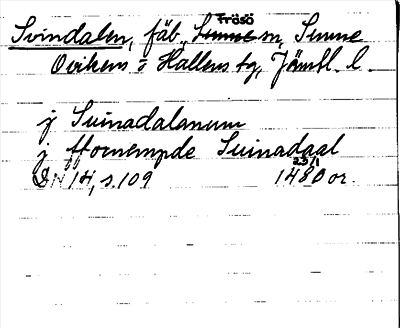 Frösö
Svindalen, fäb., Sunne sn, Sunne
Ovikens o Hallens tg, Jämtl. l.
j Suinadalanum
j Hornempde Suinadaal
DN 14, s. 109 23/1 1480 or.